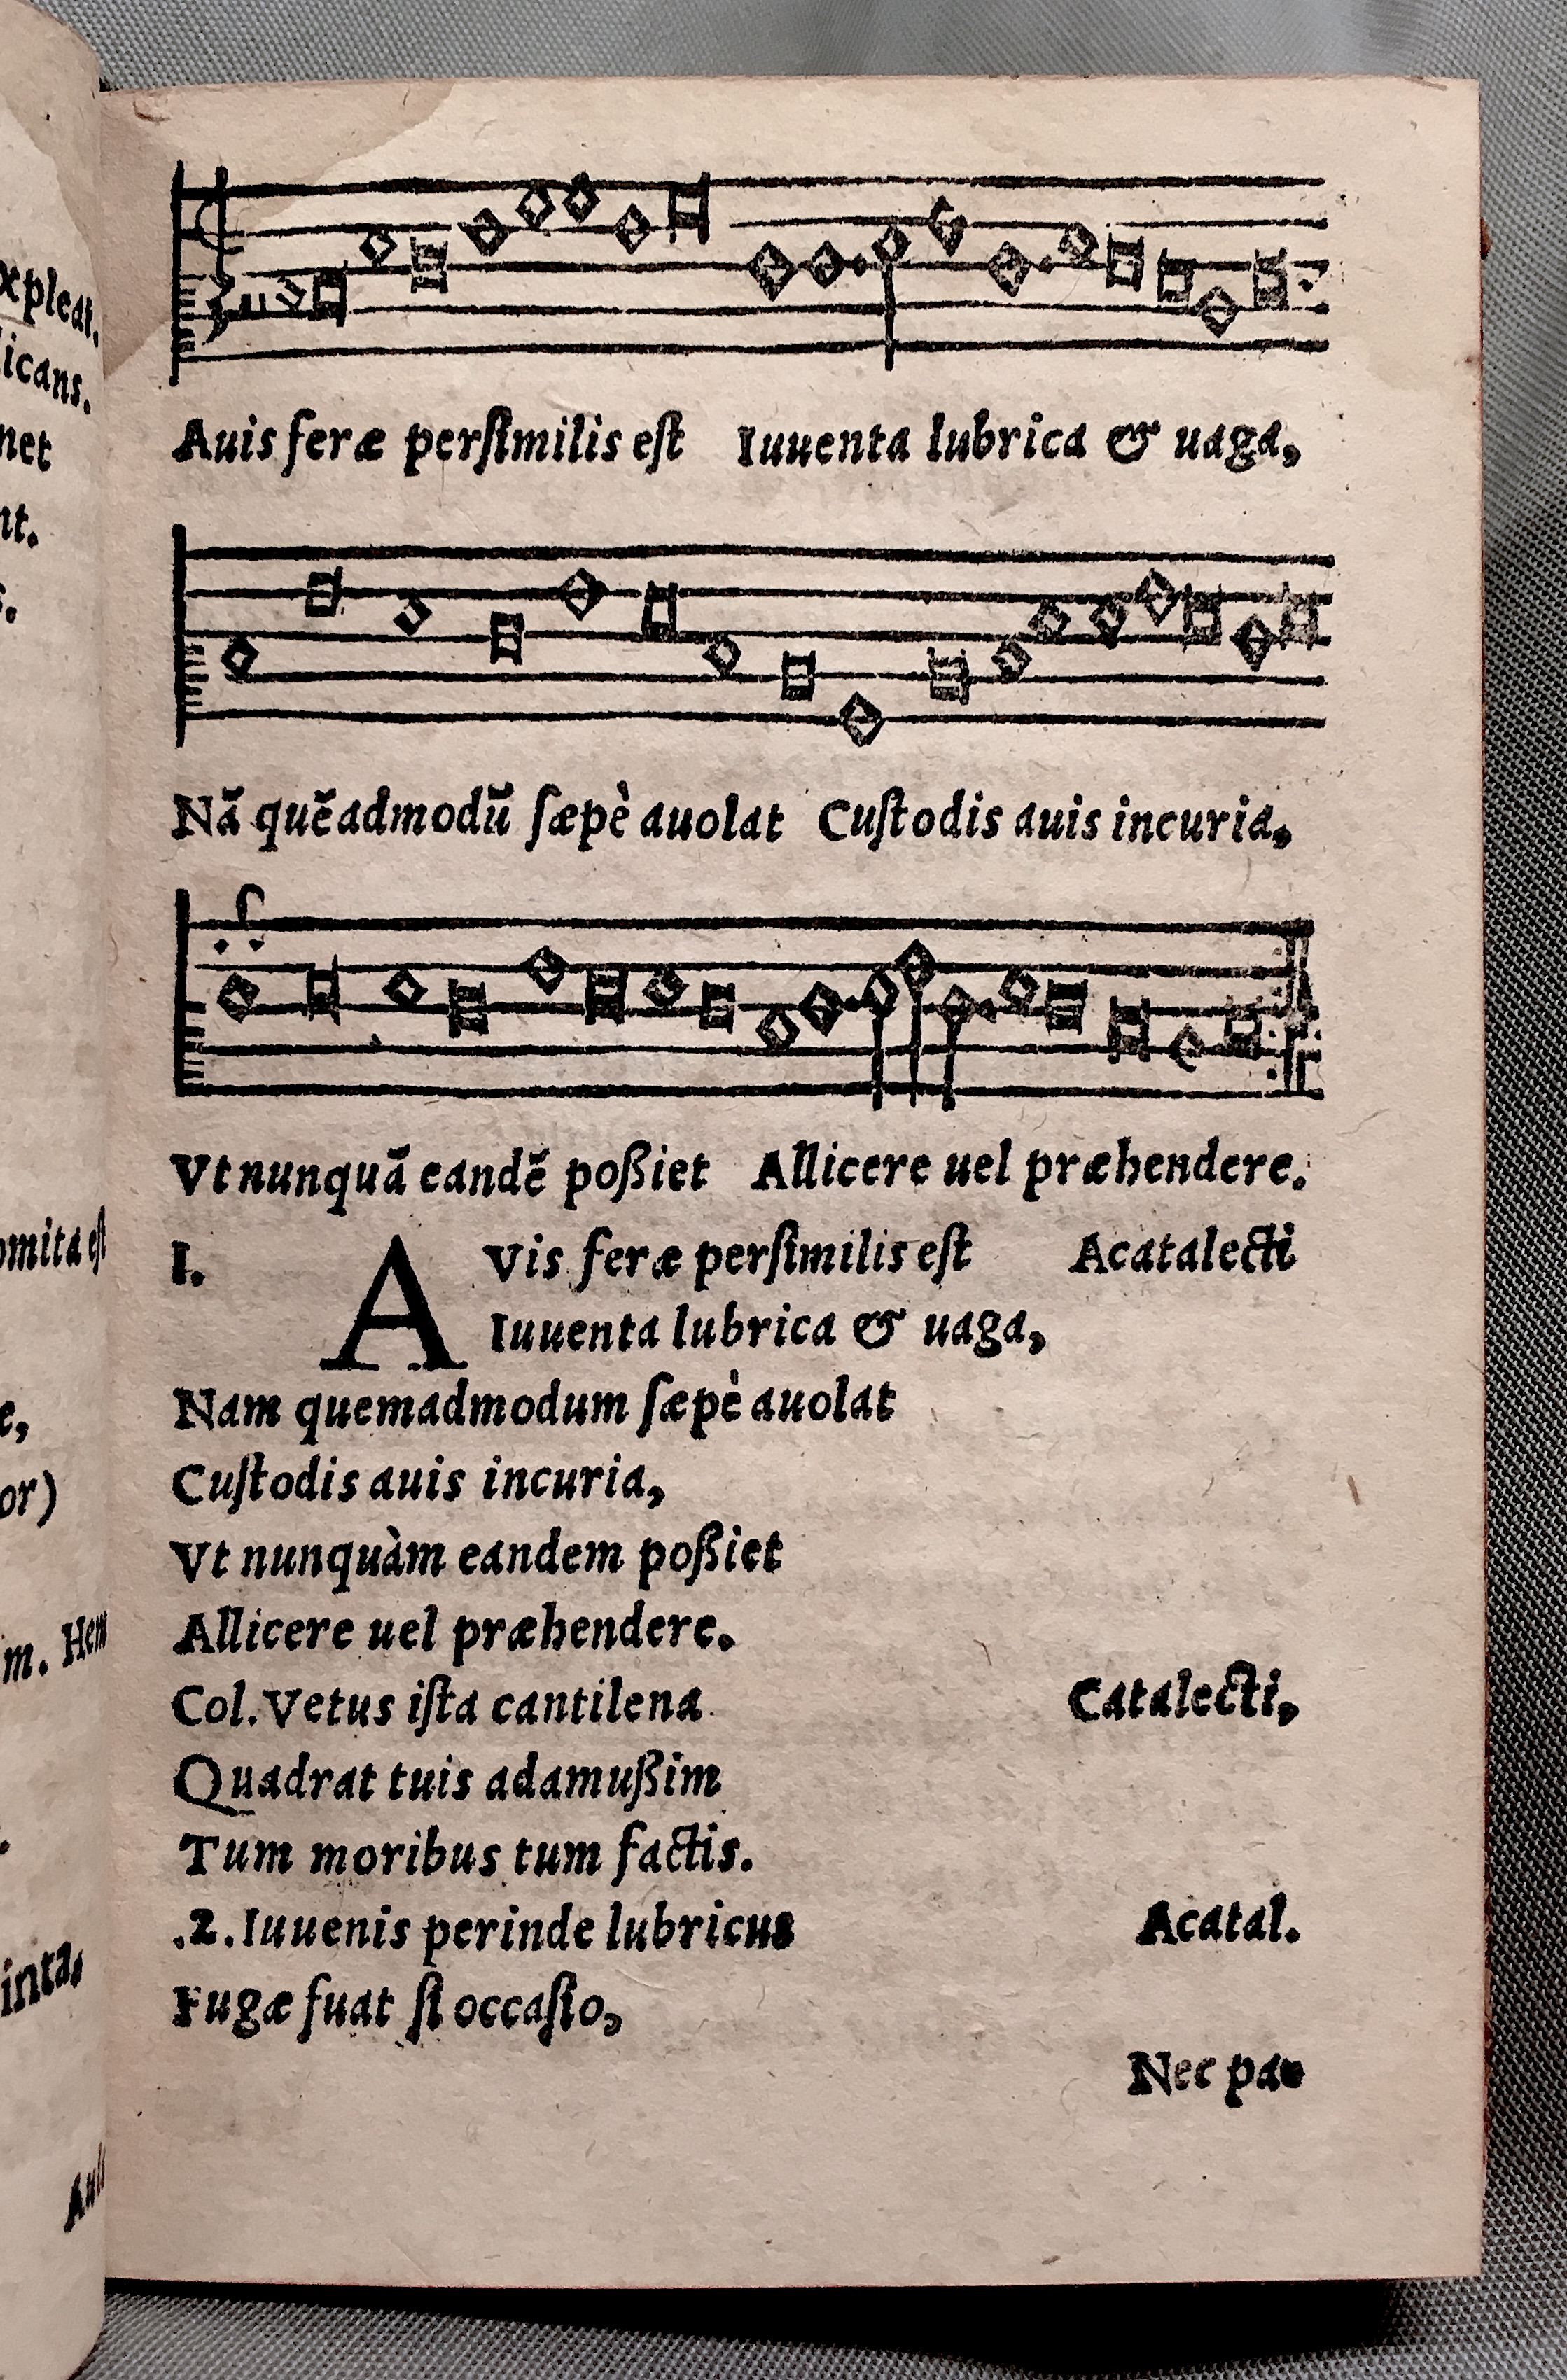 xpleat.
licans.
net
nt.
s.
omita est
e,
or)
m. Hem
inta,
Auli
Auis feræ perſimilis eſt Iuuenta lubrica & uaga,
Nā quēadmodū ſæpè auolat Cuſtodis auis incuria,
Vt nunquā eandē poßiet Allicere uel præhendere.
I. AVis feræ perſimilis eſt Acatalecti
Iuuenta lubrica & uaga,
Nam quemadmodum ſæpè auolat
Cuſtodis auis incuria,
Vt nunquàm eandem poßiet
Allicere uel præhendere.
Col. Vetus iſta cantilena Catalecti,
Quadrat tuis adamußim
Tum moribus tum factis.
.2. Iuuenis perinde lubricus Acatal.
Fugæ fuat ſi occaſio,
Nec pa